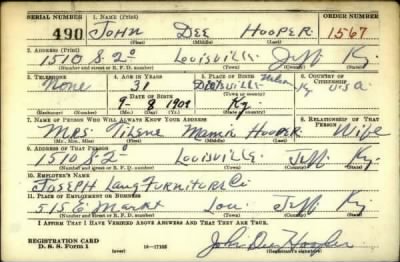 SERIAL NUMBER 1. NAME (Print) ORDER NUMBER
490 John Dee Hooper 1567
(First) (Middle) (Last)
2. ADDRESS (Print)
1510 S. 2º Louisville Jeff Ky.
(Number and street or R. F. D. number) (Town) (County) (State)
3. TELEPHONE 4. AGE IN YEARS 5. PLACE OF BIRTH 6. COUNTRY OF CITIZENSHIP
None 31 Ky U.S.A
DATE OF BIRTH (Town or county)
9-8 1909 Ky.
(Mo.) (Day) (Yr.) (State or country)
7. NAME OF PERSON WHO WILL ALWAYS KNOW YOUR ADDRESS 8. RELATIONSHIP OF THAT PERSON
Mrs Hooper Wife
(Mr., Mrs., Miss) (First) (Middle) (Last)
9. ADDRESS OF THAT PERSON
1510 S. 2º Louisville Jeff. Ky.
(Number and street or R. F. D. number) (Town) (County) (State)
10. EMPLOYER'S NAME
Joseph Lang Furniture Co
11. PLACE OF EMPLOYMENT OR BUSINESS
515 E Markt Lou Jeff Ky.
(Number and street or R. F. D. number) (Town) (County) (State)
I AFFIRM THAT I HAVE VERIFIED ABOVE ANSWERS AND THAT THEY ARE TRUE.
REGISTRATION CARD
D. S. S. Form 1 (over) 16—17105 John Dee Hooper
(Registrant's signature)